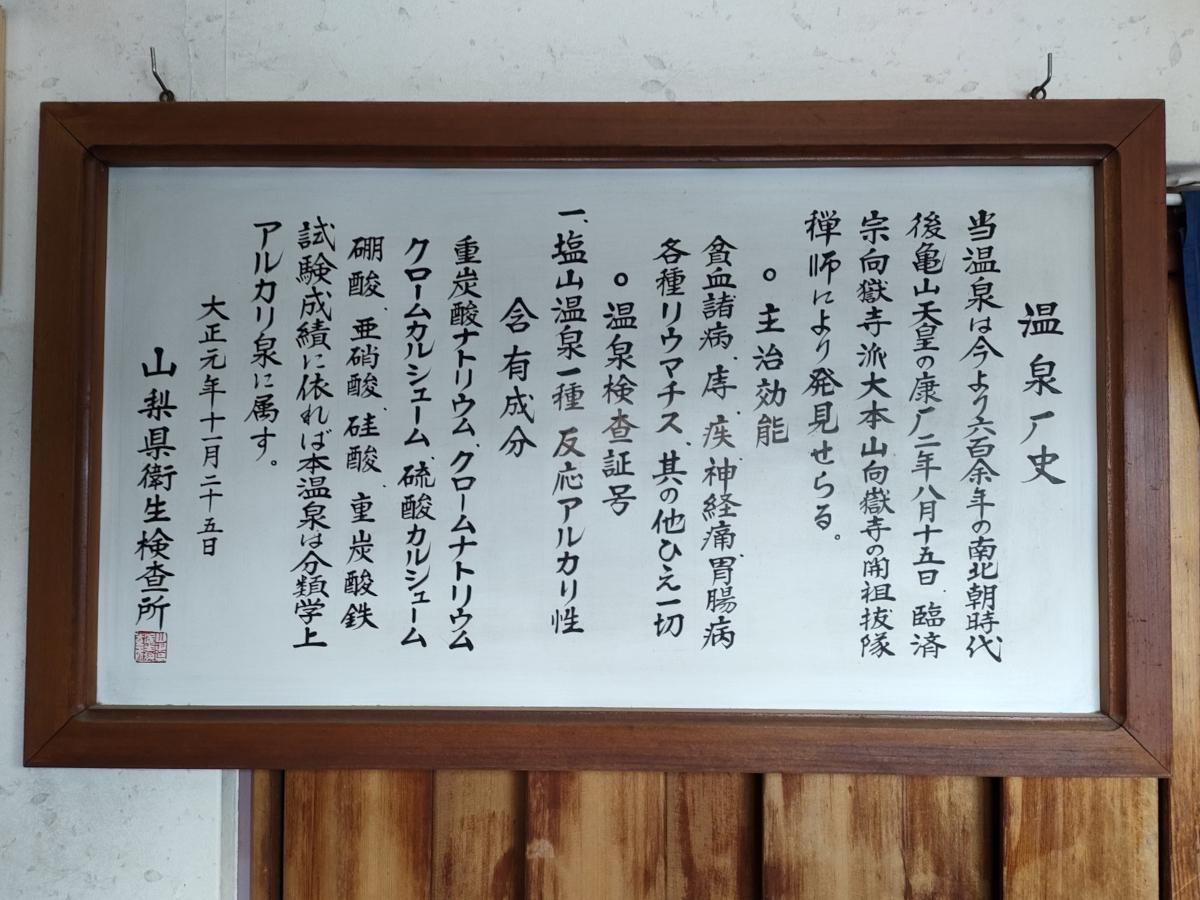 温泉厂史
当温泉は今より六百余年の南北朝時代
後亀山天皇の康厂二年八月十五日、臨済
宗向嶽寺派大本山向嶽寺の開祖抜隊
禅師により発見せらる。
○主治効能
貧血諸病、痔、疾、神経痛、胃腸病
各種リウマチス、其の他ひえ一切
○温泉検査証号
一、塩山温泉一種 反応アルカリ性
含有成分
重炭酸ナトリウム、クロームナトリウム
クロームカルシューム、硫酸カルシューム
硼酸、亜硝酸、硅酸、重炭酸鉄
試験成績に依れば本温泉は分類学上
アルカリ泉に属す。
大正元年十一月二十五日
山梨県衛生検査所